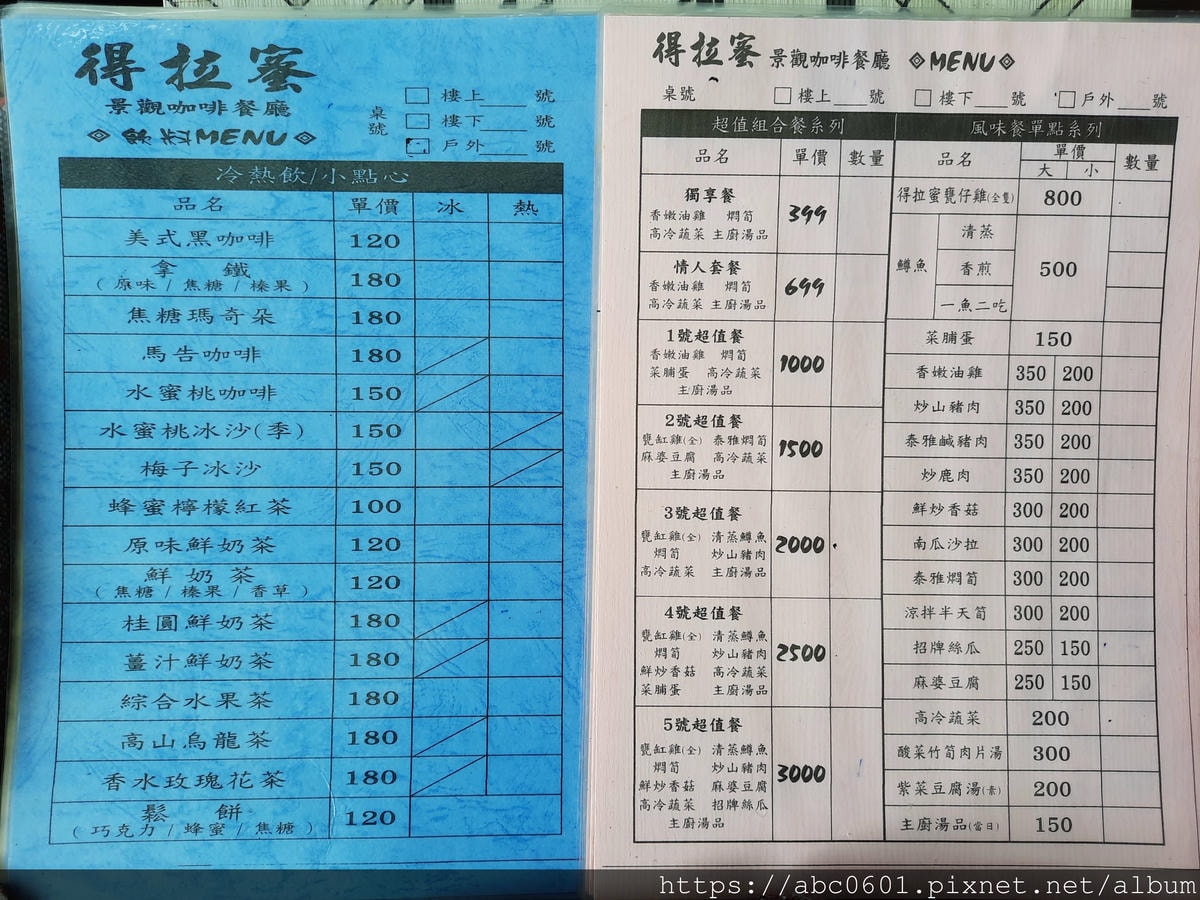 得拉蜜
景觀咖啡餐廳
飲料MENU
桌號
樓上 號
樓下 號
戶外 號
冷熱飲/小點心
品名 單價 冰 熱
美式黑咖啡 120
拿鐵 180
(原味/焦糖/榛果)
焦糖瑪奇朵 180
馬告咖啡 180
水蜜桃咖啡 150
水蜜桃冰沙(季) 150
梅子冰沙 150
蜂蜜檸檬紅茶 100
原味鮮奶茶 120
鮮奶茶 120
(焦糖/榛果/香草)
桂圓鮮奶茶 180
薑汁鮮奶茶 180
綜合水果茶 180
高山烏龍茶 180
香水玫瑰花茶 180
鬆餅 120
(巧克力/蜂蜜/焦糖)
得拉蜜 景觀咖啡餐廳 MENU
桌號 樓上 號 樓下 號 戶外 號
超值組合餐系列
品名 單價 數量
獨享餐 399
香嫩油雞 燜筍
高冷蔬菜 主廚湯品
情人套餐 699
香嫩油雞 燜筍
高冷蔬菜 主廚湯品
1號超值餐 1000
香嫩油雞 燜筍
菜脯蛋 高冷蔬菜
主廚湯品
2號超值餐 1500
甕缸雞(全) 泰雅燜筍
麻婆豆腐 高冷蔬菜
主廚湯品
3號超值餐 2000
甕缸雞(全) 清蒸鱒魚
燜筍 炒山豬肉
高冷蔬菜 主廚湯品
4號超值餐 2500
甕缸雞(全) 清蒸鱒魚
燜筍 炒山豬肉
鮮炒香菇 高冷蔬菜
菜脯蛋 主廚湯品
5號超值餐 3000
甕缸雞(全) 清蒸鱒魚
燜筍 炒山豬肉
鮮炒香菇 麻婆豆腐
高冷蔬菜 招牌絲瓜
主廚湯品
風味餐單點系列
品名 單價 數量
大 小
得拉蜜甕仔雞(全隻) 800
鱒魚 500
清蒸
香煎
一魚二吃
菜脯蛋 150
香嫩油雞 350 200
炒山豬肉 350 200
泰雅鹹豬肉 350 200
炒鹿肉 350 200
鮮炒香菇 300 200
南瓜沙拉 300 200
泰雅燜筍 300 200
涼拌半天筍 300 200
招牌絲瓜 250 150
麻婆豆腐 250 150
高冷蔬菜 200
酸菜竹筍肉片湯 300
紫菜豆腐湯(素) 200
主廚湯品(當日) 150
https://abc0601.pixnet.net/album